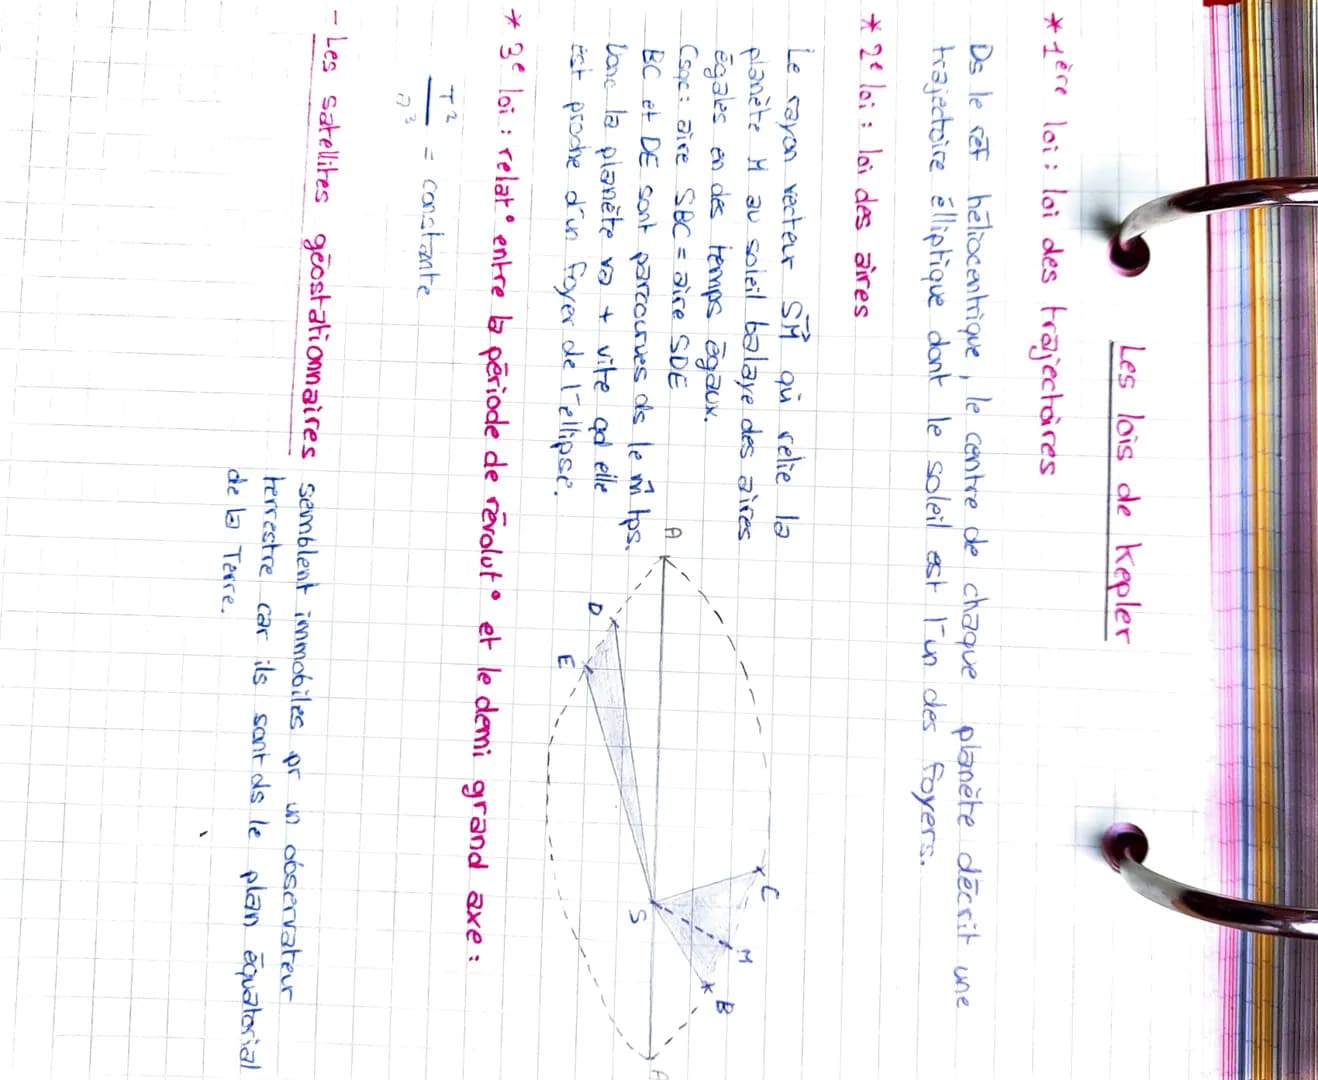 Les lois de Kepler
* 1ère loi : loi des trajectoires
Ds le réf héliocentrique, le centre de chaque planète décrit une
trajectoire élliptique dont le soleil est l'un des foyers.
* 2e loi : loi des aires
Le rayon vecteur SM qui relie la
planète M au soleil balaye des aires
égales en des temps égaux.
Csqc : aire SBC = aire SDE
BC et DE sont parcourues ds le m̂ tps.
Donc la planète va + vite qd elle
est proche d'un foyer de l'ellipse.
A
D
E
C
M
B
S
A
* 3e loi : relat° entre la période de révolut° et le demi grand axe :
T²
a³
= constante
- Les satellites géostationnaires semblent immobiles pr un observateur
terrestre car ils sont ds le plan équatorial
de la Terre.